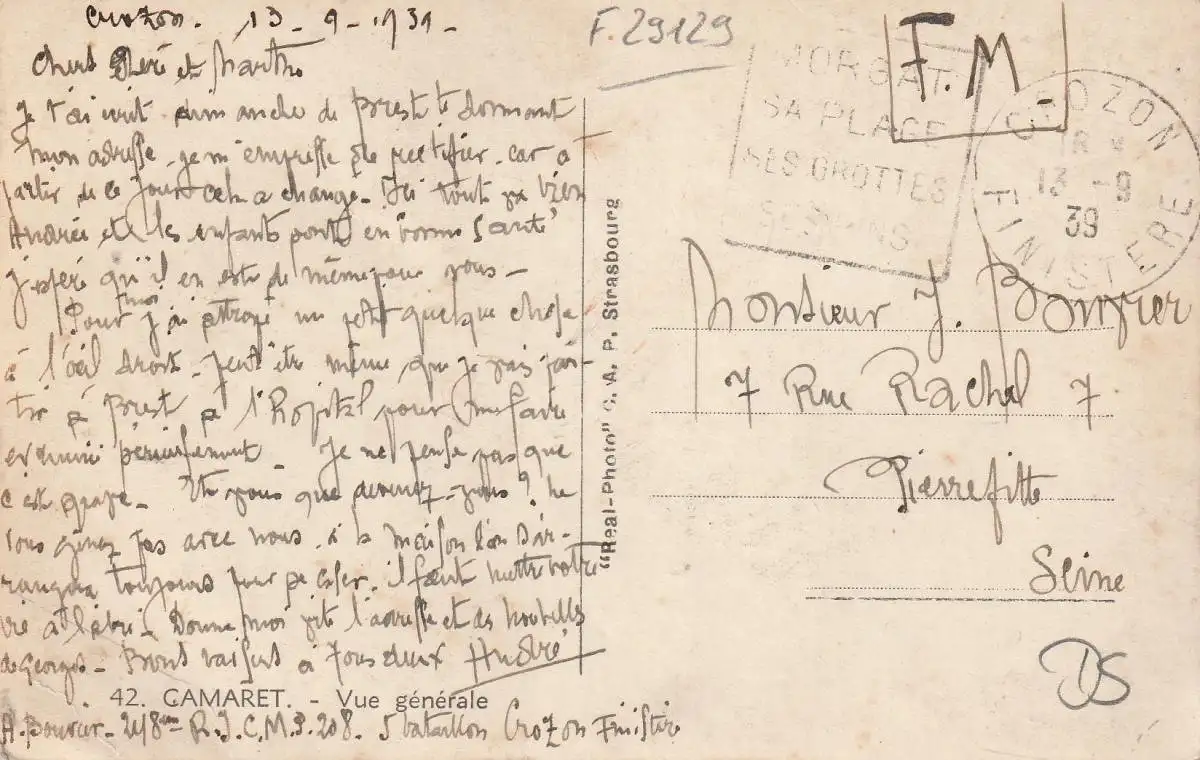 Crozon. 13-9-1939-
F.29129
F.M.
MORGAT
SA PLAGE
SES GROTTES
CROZON
13-9
39
FINISTERE
Chers Péré et Marthe
Je t'ai écrit dimanche de Brest te donnant
mon adresse. je m'empresse de rectifier. car a
partir de ce jour cela a changé. Ici tout va bien
Andrée et les enfants sont en bonne santé
j'espère qu'il en est de même pour vous-
Pour moi j'ai attrapé un petit quelque chose
à l'œil droit - peut être même que je vais par-
tir à Brest à l'hopital pour me faire
examiner sérieusement - Je ne pense pas que
c'est grave - Et vous que devenez-vous? Ne
vous gênez pas avec nous. à la maison l'on s'ar-
rangera toujours pour se caser. il faut mettre votre
vie à l'abri - Donne moi vite l'adresse et des nouvelles
de Georges - Bons baisers à tous deux André
42. CAMARET. - Vue générale
A. Bouvier - 248ème R.I.C.M.P.208. 5 bataillon Crozon Finistère
"Réal-Photo" C. A. P. Strasbourg
Monsieur J. Bouvier
7 Rue Rachel 7
Pierrefitte
Seine
DS